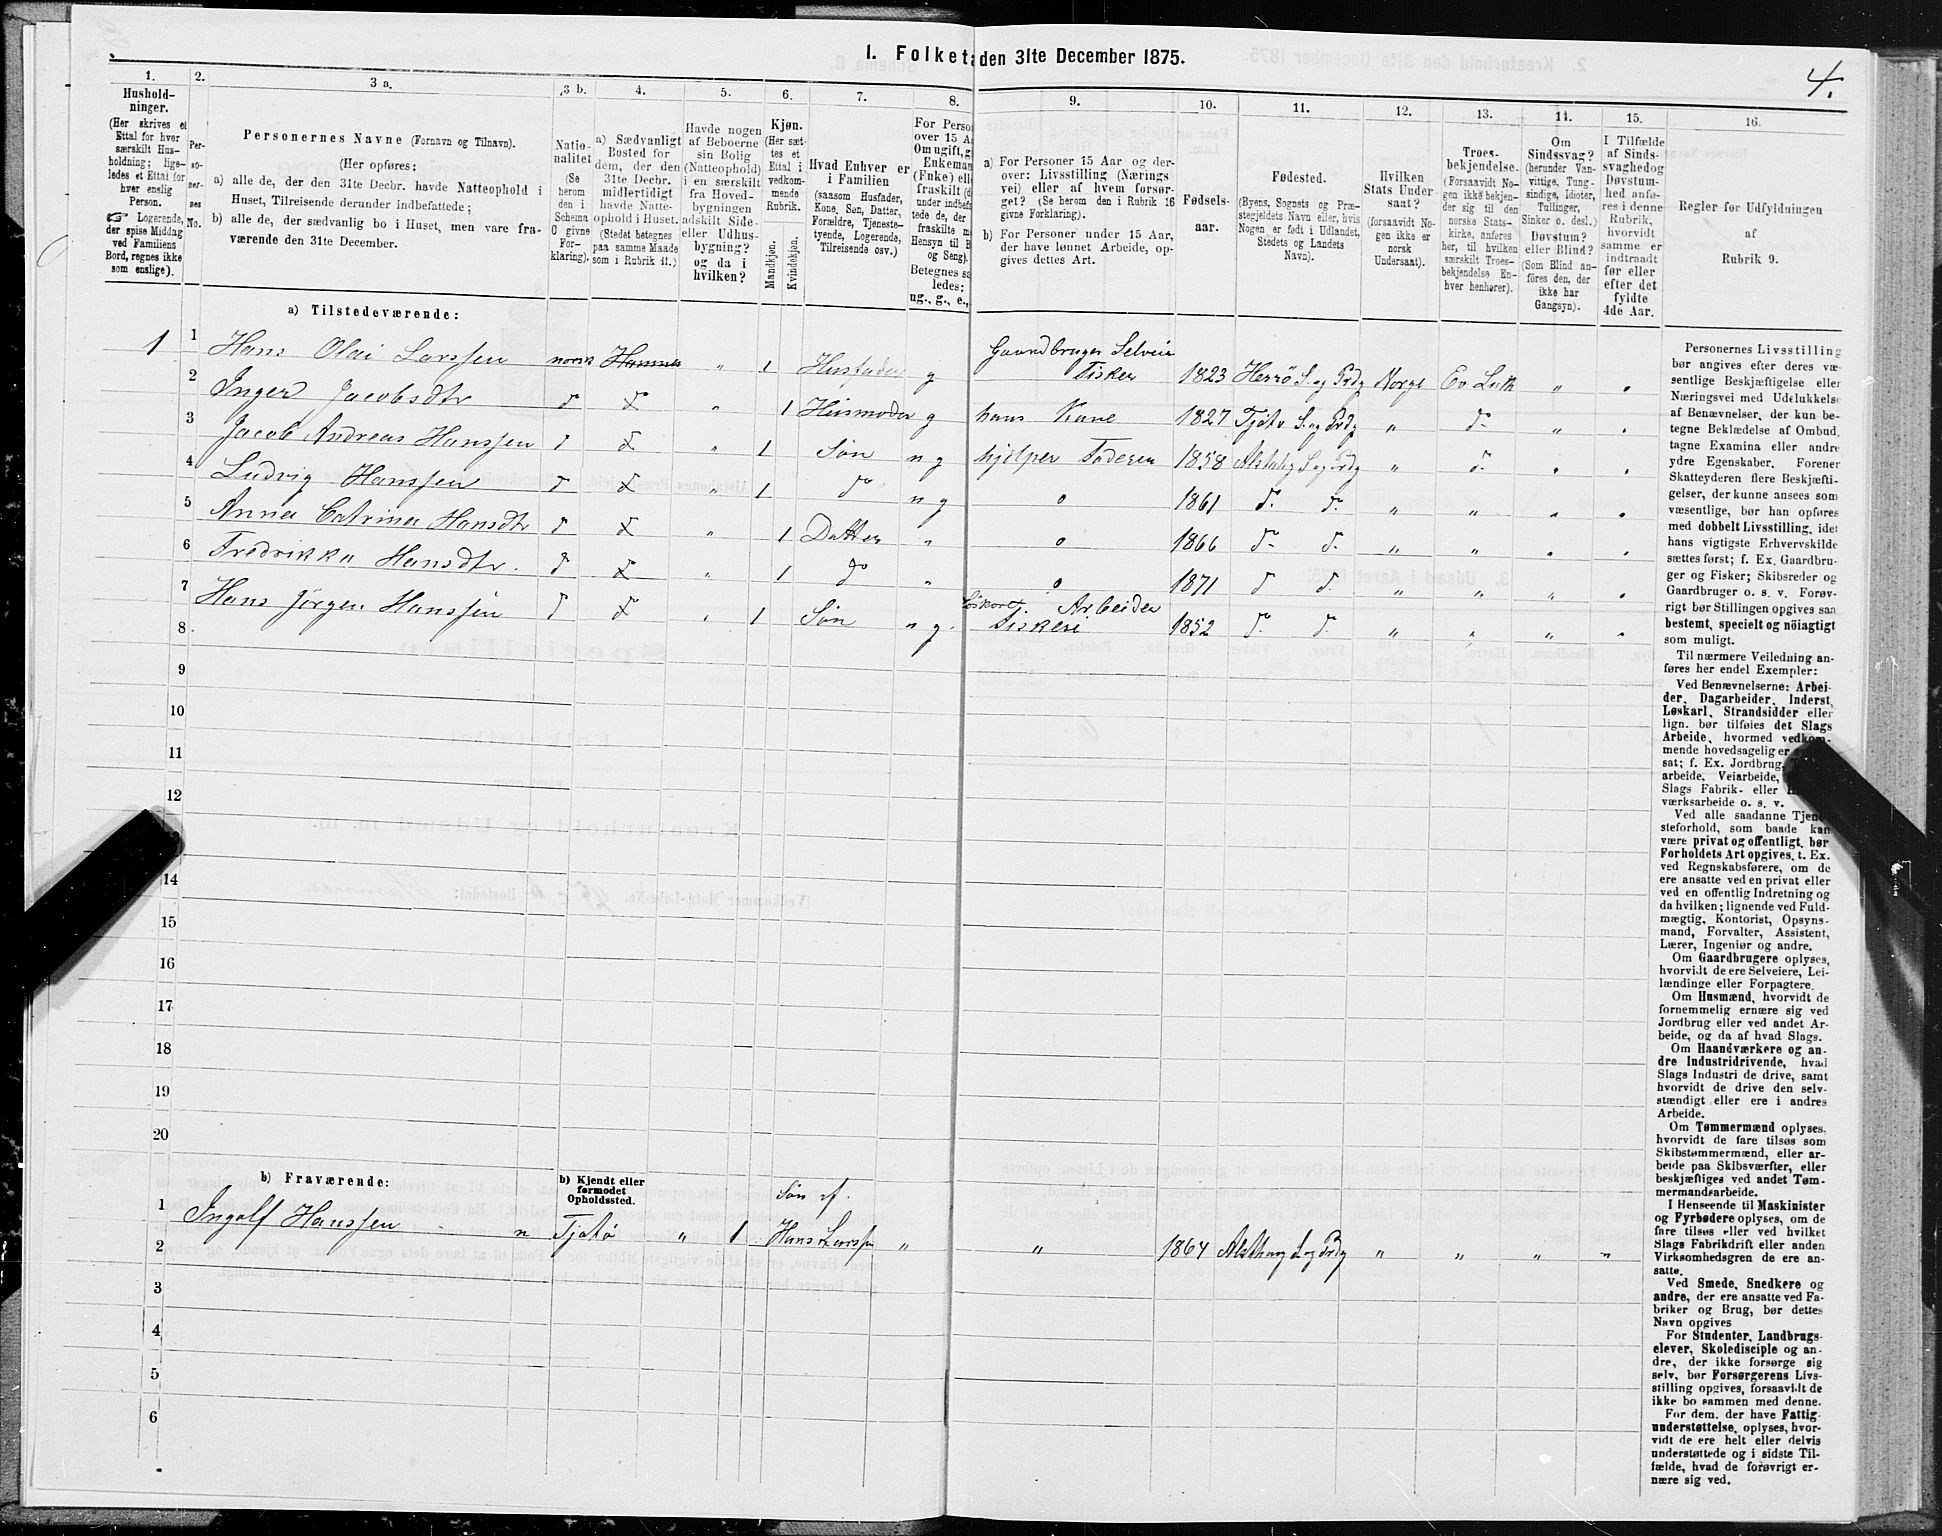 1. Folketa den 31te December 1875.
4.
1.
2.
3 a.
3 b.
4.
5.
6.
7.
8.
9.
10.
11.
12.
13.
14.
15.
16.
Hushold-
ninger.
(Her skrives et
Ettal for hver
særskilt Hus-
holdning; lige-
ledes et Ettal for
hver enslig
Person.
☞ Logerende,
der spise Middag
ved Familiens
Bord, regnes ikke
som enslige).
Per-
so-
ner-
nes
No.
Personernes Navne (Fornavn og Tilnavn).
(Her opføres:
a) alle de, der den 31te Decbr. havde Natteophold i
Huset, Tilreisende derunder indbefattede;
b) alle de, der sædvanlig bo i Huset, men vare fra-
værende den 31te December.
Natio-
nalitet
(Se
herom
den i
Schema
O givne
For-
klaring).
a) Sædvanligt
Bosted for
dem, der den
31te Decbr.
midlertidigt
havde Natte-
ophold i Huset.
(Stedet betegnes
paa samme Maade
som i Rubrik 11.)
Havde nogen
af Beboerne
sin Bolig
(Natteophold)
i en særskilt
fra Hoved-
bygningen
adskilt Side-
eller Udhus-
bygning?
og da i
hvilken?
Kjøn.
(Her sæt-
tes et
Ettal i
vedkom-
mende
Rubrik.
Mandkjøn.
Kvindekjøn.
Hvad Enhver er
i Familien
(saasom Husfader,
Kone, Søn, Datter,
Forældre, Tjeneste-
tyende, Logerende,
Tilreisende osv.)
For Perso
over 15 A
Om ugift, g
Enkeman
(Enke) elle
fraskilt (d
under indbefa
tede de, der
fraskilte m
Hensyn til B
og Seng).
Betegnes sa
ledes:
ug., g., e.,
a) For Personer 15 Aar og der-
over: Livsstilling (Nærings
vei) eller af hvem forsør-
get? (Se herom den i Rubrik 16
givne Forklaring).
b) For Personer under 15 Aar,
der have lønnet Arbeide, op-
gives dettes Art.
Fødsels-
aar.
Fødested.
(Byens, Sognets og Præ-
stegjeldets Navn eller, hvis
Nogen er født i Udlandet,
Stedets og Landets
Navn).
Hvilken
Stats Under-
saat?
(forsaavidt No-
gen ikke er
norsk
Undersaat).
Troes-
bekjendelse.
(Forsaavidt No-
gen ikke bekjen-
der sig til den
norske Stats-
kirke, anføres
her, til hvilken
særskilt Troes-
bekjendelse En-
hver henhører).
Om
Sindssvag?
(herunder Van-
vittige, Tung-
sindige, Idioter,
Tullinger,
Sinker o. desl.)
Døvstum?
eller Blind?
(Som Blind an-
føres den, der
ikke har
Gangsyn).
I Tilfælde
af Sinds-
svaghed og
Døvstum-
hed anfø-
res i denne
Rubrik,
hvorvidt
samme er
indtraadt
før eller
efter det
fyldte
4de Aar.
Regler for Udfyldningen
af
Rubrik 9.
a) Tilstedeværende:
1 1 Hans Olai Larssen norsk Hamnes " 1 Husfader g Gaardbruger Selveier Fisker 1823 Herrö S. og Prdg Norge Ev Luth " "
2 Inger Jacobsdtr d d " 1 Husmoder g hans Kone 1827 Tjøtø S. og Prdg " d "
3 Jacob Andreas Hanssen d d " 1 Søn ug hjelper Faderen 1858 Alstahg S og Prdg " d " "
4 Ludvig Hanssen d d " 1 d ug o 1861 d. d. " " " "
5 Anna Catrina Hansdtr d d " 1 Datter " o 1866 d. d. " " " "
6 Fredrikka Hansdtr. d d " 1 d " o 1871 d d. " " " "
7 Hans Jørgen Hanssen d d " 1 Søn ug. Løskarl. Arbeider Fiskeri 1852 d. d. " " " "
8
9
10
11
12
13
14
15
16
17
18
19
20
b) Fraværende:
b) Kjendt eller
formodet
Opholdssted.
Søn af.
1 Ingolf Hanssen n Tjøtø " 1 Hans Larssen " " 1864 Alsthaug S og Prdg " " " "
2
3
4
5
6
Personernes Livsstilling
bør angives efter deres væ-
sentlige Beskjæftigelse eller
Næringsvei med Udelukkelse
af Benævnelser, der kun be-
tegne Beklædelse af Ombud,
tagne Examina eller andre
ydre Egenskaber. Forener
Skatteyderen flere Beskjæfti-
gelser, der kunne ansees som
væsentlige, bør han opføres
med dobbelt Livsstilling, idet
hans vigtigste Erhvervskilde
sættes først; f. Ex. Gaardbru-
ger og Fisker; Skibsreder og
Gaardbruger o. s. v. Forøv-
rigt bør Stillingen opgives saa
bestemt, specielt og nöiagtigt
som muligt.
Til nærmere Veiledning an-
føres her endel Exempler:
Ved Benævnelserne: Arbei-
der, Dagarbeider, Inderst,
Løskarl, Strandsidder eller
lign. bør tilføies det Slags
Arbeide, hvormed vedkom-
mende hovedsagelig er
sat; f. Ex. Jordbrug,
arbeide, Veiarbeide,
Slags Fabrik- eller
værksarbeide o. s. v.
Ved alle saadanne Tjene-
steforhold, som baade kan
være privat og offentligt, bør
Forholdets Art opgives, t. Ex.
ved Regnskabsførere, om de
ere ansatte ved en privat eller
ved en offentlig Indretning og
da hvilken; lignende ved Fuld-
mægtig, Kontorist, Opsyns-
mand, Forvalter, Assistent,
Lærer, Ingeniør og andre.
Om Gaardbrugere oplyses,
hvorvidt de ere Selveiere, Lei-
lændinge eller Forpagtere.
Om Husmænd, hvorvidt de
fornemmelig ernære sig ved
Jordbrug eller ved andet Ar-
beide, og da af hvad Slags.
Om Haandværkere og an-
dre Industridrivende, hvad
Slags Industri de drive, samt
hvorvidt de drive den selv-
stændigt eller ere i andres
Arbeide.
Om Tømmermænd oplyses,
hvorvidt de fare tilsøs som
Skibstømmermænd, eller ar-
beide paa Skibsværfter, eller
beskjæftiges ved andet Tøm-
mermandsarbeide.
I Henseende til Maskinister
og Fyrbødere oplyses, om de
fare tilsøs eller ved hvilket
Slags Fabrikdrift eller anden
Virksomhedsgren de ere an-
satte.
Ved Smede, Snedkere og
andre, der ere ansatte ved Fa-
briker og Brug, bør dettes
Navn opgives
For Studenter, Landbrugs-
elever, Skoledisciple og an-
dre, der ikke forsørge sig
selv, bør Forsørgerens Livs-
stilling opgives, forsaavidt de
ikke bo sammen med denne.
For dem, der have Fattig-
understøttelse, oplyses, hvor-
vidt de ere helt eller delvis
understøttede og i sidste Til-
fælde, hvad de forøvrigt er-
nære sig ved.